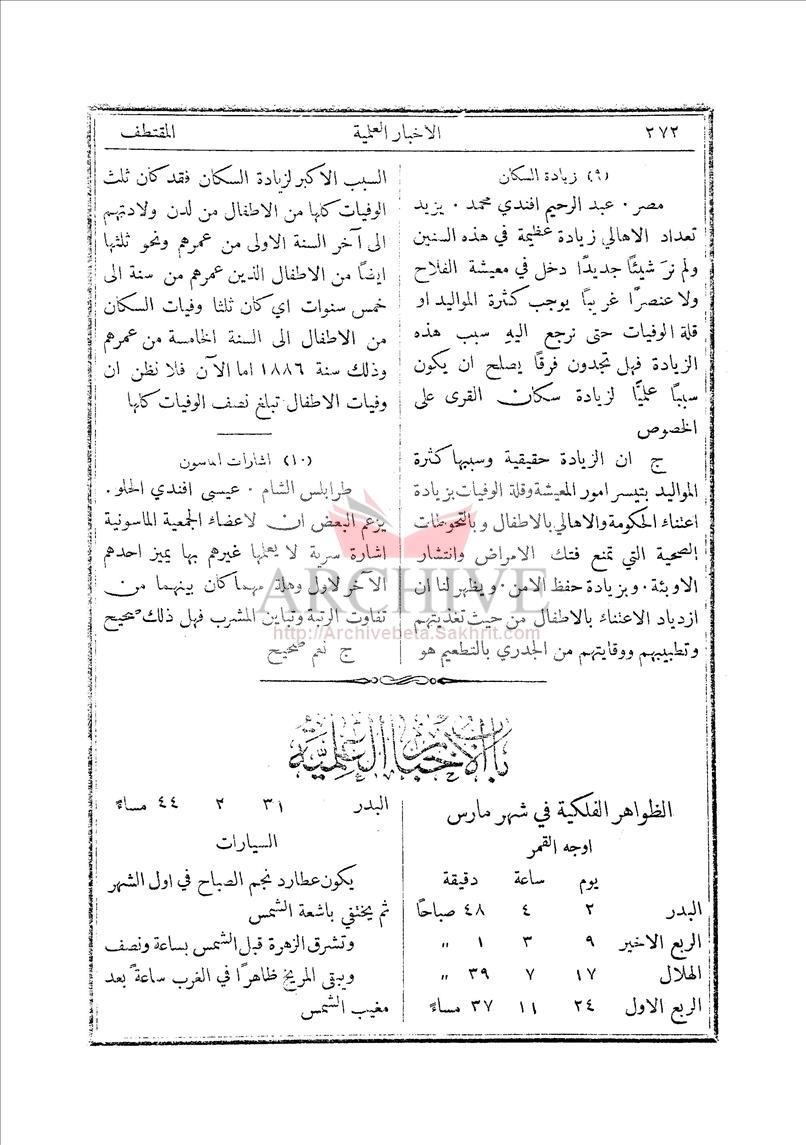 ٢٧٢
الاخبار العلمية
المقتطف
(٩) زيادة السكان
مصر. عبد الرحيم افندي محمد. يزيد
تعداد الاهالي زيادة عظيمة في هذه السنين
ولم نرَ شيئًا جديدًا دخل في معيشة الفلاح
ولا عنصرًا غريبًا يوجب كثرة المواليد او
قلة الوفيات حتى نرجع اليهِ سبب هذه
الزيادة فهل تجدون فرقًا يصلح ان يكون
سببًا علميًّا لزيادة سكان القرى على
الخصوص
ج ان الزيادة حقيقية وسببها كثرة
المواليد بتيسر امور المعيشة وقلة الوفيات بزيادة
اعتناء الحكومة والاهالي بالاطفال وبالتحوطات
الصحية التي تمنع فتك الامراض وانتشار
الاوبئة. وبزيادة حفظ الامن. ويظهر لنا ان
ازدياد الاعتناء بالاطفال من حيث تغذيتهم
وتطبيبهم ووقايتهم من الجدري بالتطعيم هو
السبب الاكبر لزيادة السكان فقد كان ثلث
الوفيات كلها من الاطفال من لدن ولادتهم
الى آخر السنة الاولى من عمرهم ونحو ثلثها
ايضًا من الاطفال الذين عمرهم من سنة الى
خمس سنوات اي كان ثلثا وفيات السكان
من الاطفال الى السنة الخامسة من عمرهم
وذلك سنة ١٨٨٦ اما الآن فلا نظن ان
وفيات الاطفال تبلغ نصف الوفيات كلها
(١٠) اشارات الماسون
طرابلس الشام. عيسى افندي الحلو.
يزعم البعض ان لاعضاء الجمعية الماسونية
اشارة سرية لا يعلمها غيرهم بها يميز احدهم
الآخر لاول وهلة مهما كان بينهما من
تفاوت الرتبة وتباين المشرب فهل ذلك صحيح
ج نعم صحيح
ARCHIVE
http://Archivebeta.Sakhrit.com
باب الاخبار العلمية
الظواهر الفلكية في شهر مارس
اوجه القمر
يوم ساعة دقيقة
البدر ٢ ٤ ٤٨ صباحًا
الربع الاخير ٩ ٣ ١ ״
الهلال ١٧ ٧ ٣٩ ״
الربع الاول ٢٤ ١١ ٣٧ مساءً
البدر ٣١ ٢ ٤٤ مساءً
السيارات
يكون عطارد نجم الصباح في اول الشهر
ثم يختفي باشعة الشمس
وتشرق الزهرة قبل الشمس بساعة ونصف
ويبقى المريخ ظاهرًا في الغرب ساعةً بعد
مغيب الشمس